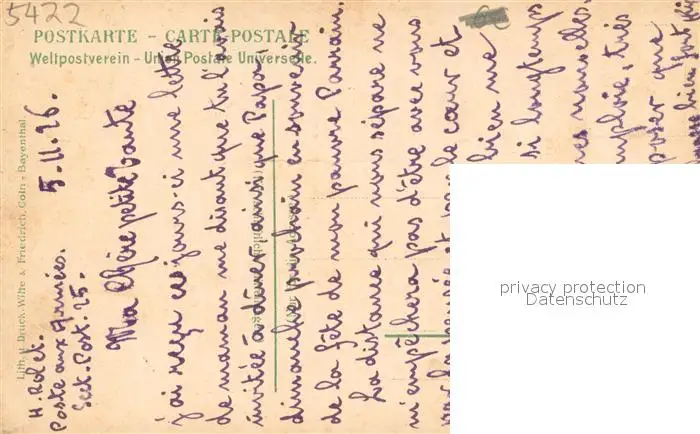 5422
POSTKARTE - CARTE POSTALE
Weltpostverein - Union Postale Universelle.
Lith. u. Druck Wilhe & Friedrich, Cöln-Bayenthal.
H. Rolet.
Poste aux Armées.
Sect. Post. 25.
5.11.26.
Ma Chère petite tante
J'ai reçu ces jours-ci une lettre
de maman me disant que tu l'avais
invitée à dîner ainsi que Papa,
dimanche prochain en souvenir
de la fête de mon pauvre Parrain.
La distance qui nous sépare ne
m'empêchera pas d'être avec vous
par la pensée et par le cœur et
bien me
si longtemps
nouvelles,
très
poser que
privacy protection
Datenschutz